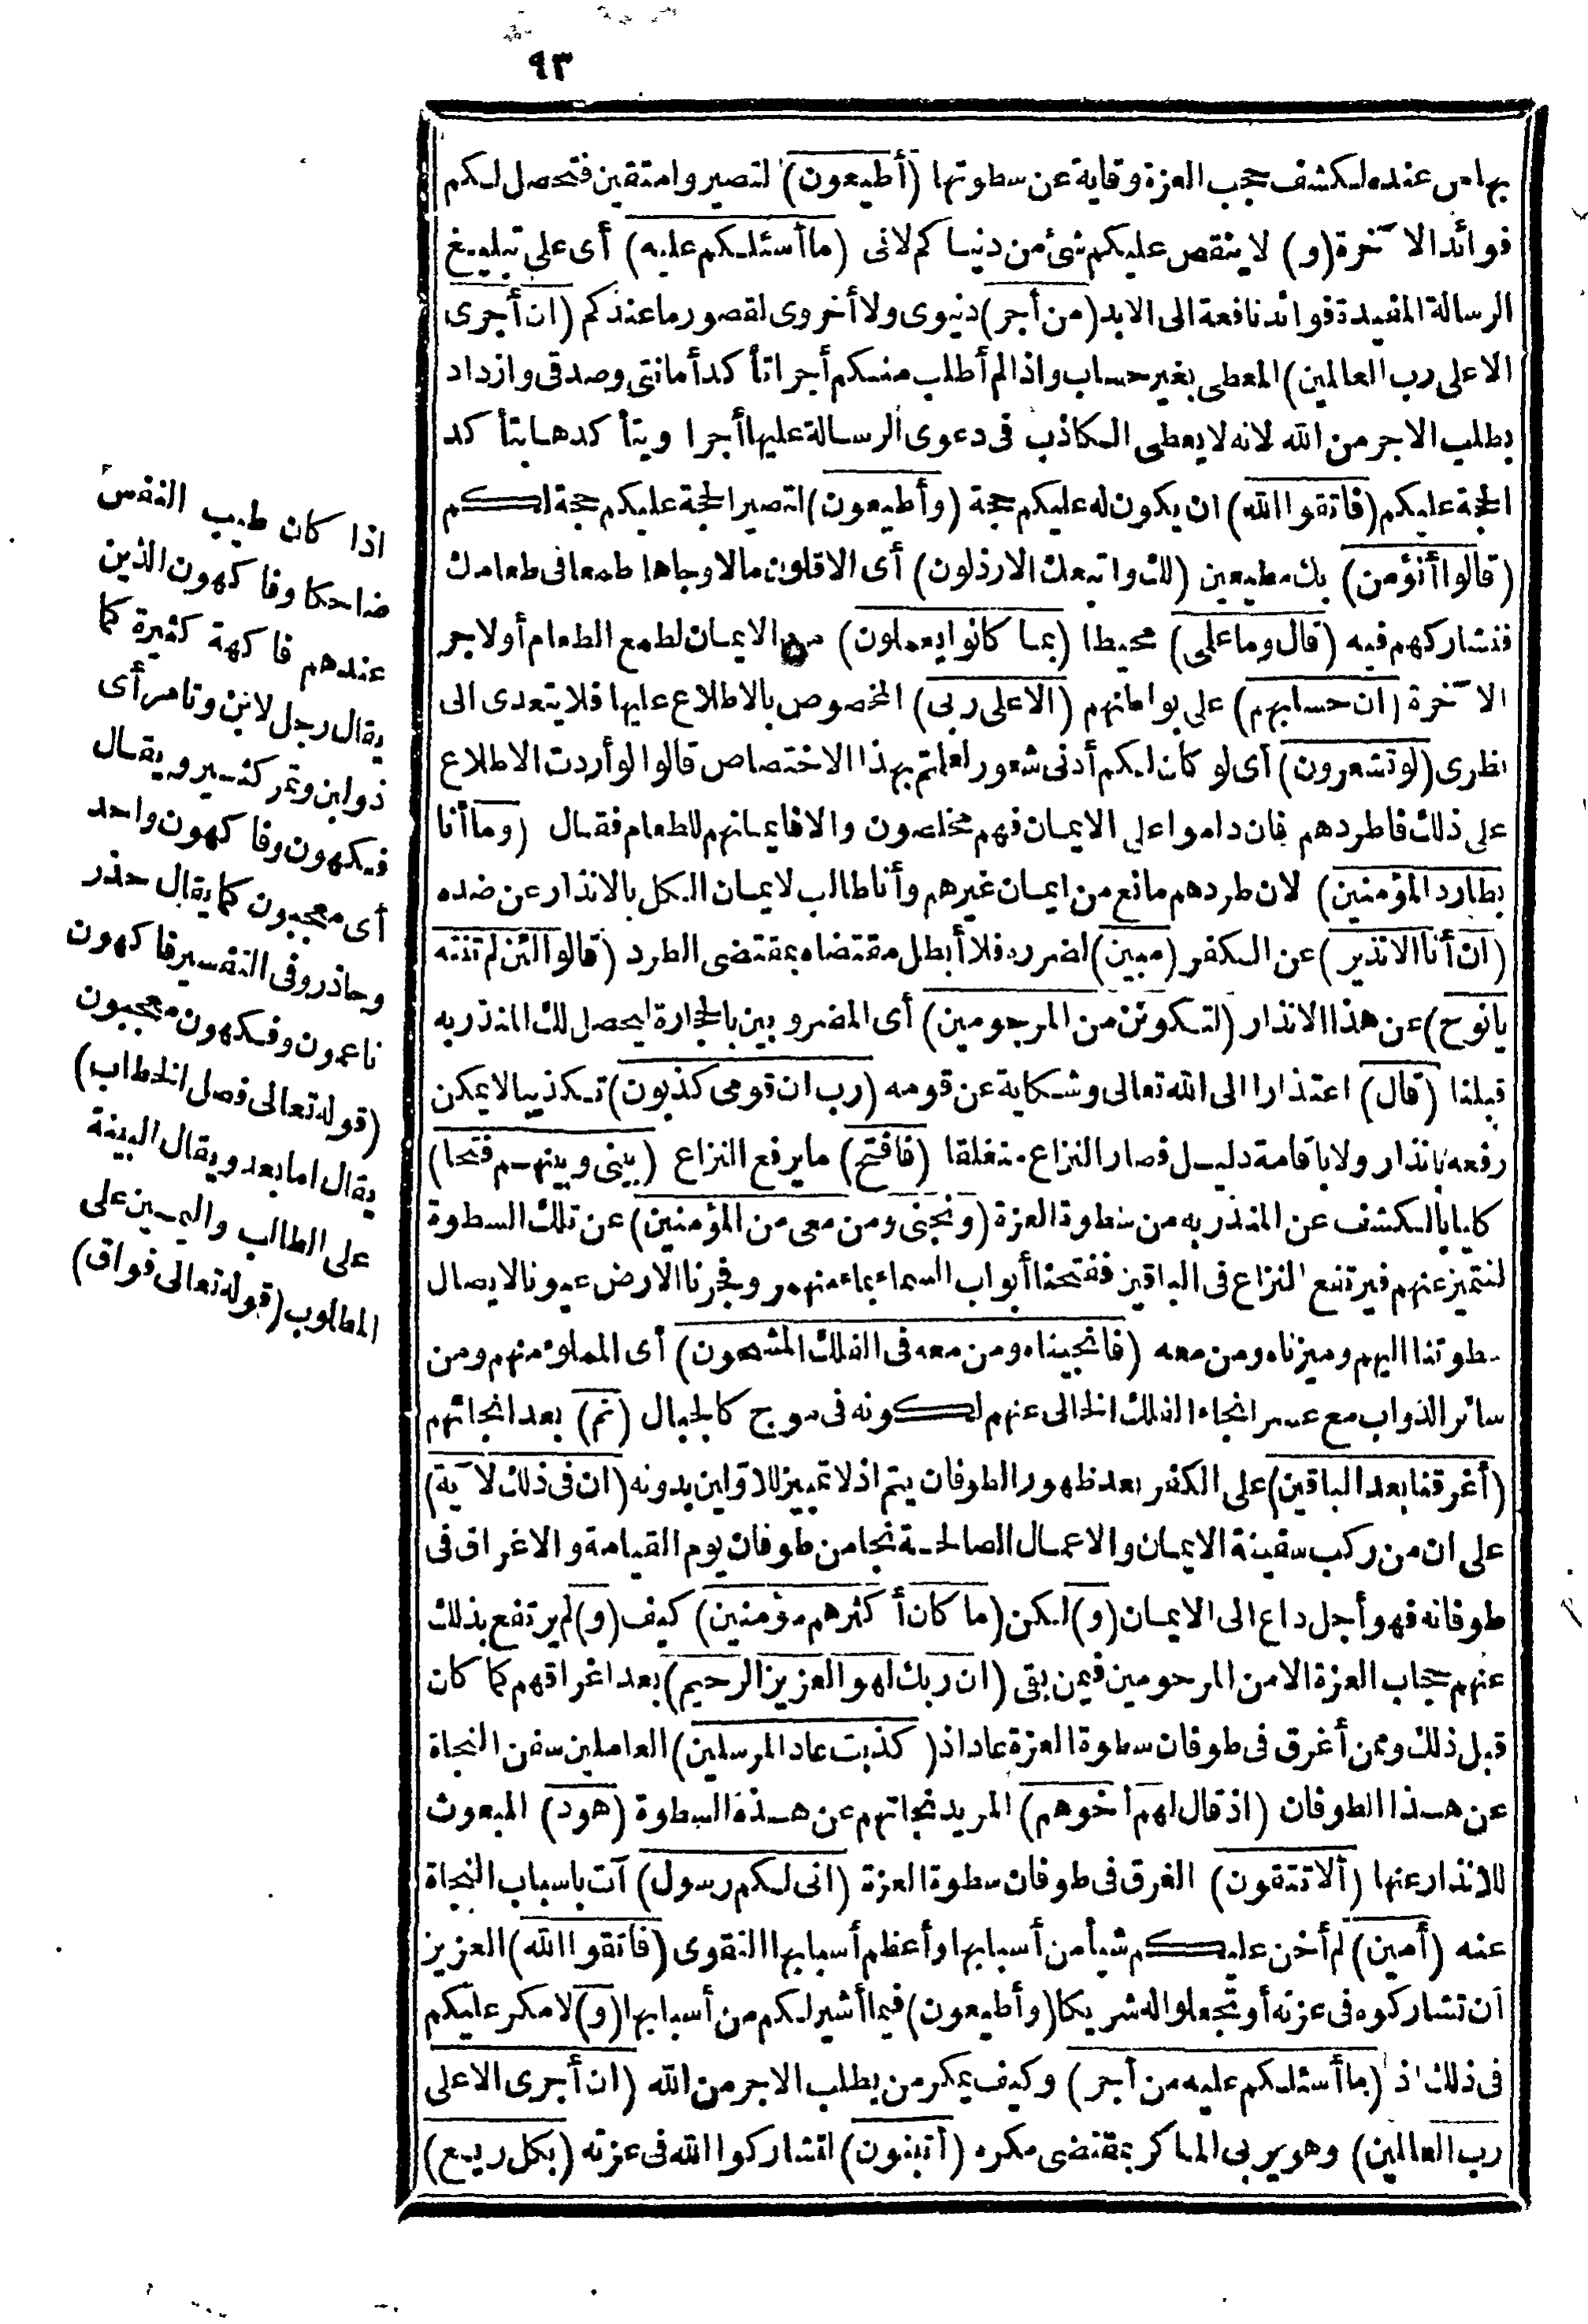 ٩٣
بها من عنده لكشف حجب العزة وقاية عن سطوتها (أطيعون) لتصيروا متقين فتحصل لكم
فوائد الآخرة (و) لا ينقص عليكم شئ من دنياكم لانى (ما أسئلكم عليه) أى على تبليغ
الرسالة المفيدة فوائد نافعة الى الابد (من أجر) دنيوى ولا أخروى لقصور ما عندكم (ان أجرى
الا على رب العالمين) المعطى بغير حساب واذا لم أطلب منكم أجرا تأكد أمانتى وصدقى وازداد
بطلب الاجر من الله لانه لا يعطى الكاذب فى دعوى الرسالة عليها أجرا ويتأكد هابتأكد
الحجة عليكم (فاتقوا الله) ان يكون له عليكم حجة (وأطيعون) لتصير الحجة عليكم حجة لكم
(قالوا أنؤمن) بك مطيعين (لك واتبعك الارذلون) أى الاقلون مالا وجاها طمعا فى طعامك
فنشاركهم فيه (قال وما على) محيطا (بما كانوا يعملون) من الايمان لطمع الطعام أولاجر
الآخرة (ان حسابهم) على بواطنهم (الا على ربى) المخصوص بالاطلاع عليها فلا يتعدى الى
نظرى (لو تشعرون) أى لو كان لكم أدنى شعور لعلمتم بهذا الاختصاص قالوا لو أردت الاطلاع
على ذلك فاطردهم فان داموا على الايمان فهم مخلصون والا فايمانهم للطعام فقال (وما أنا
بطارد المؤمنين) لان طردهم مانع من ايمان غيرهم وأنا طالب لايمان الكل بالانذار عن ضده
(ان أنا الا نذير) عن الكفر (مبين) لضرره فلا أبطل مقتضاه بمقتضى الطرد (قالوا لئن لم تنته
يانوح) عن هذا الانذار (لتكونن من المرجومين) أى المضروبين بالحجارة ليحصل لك المنذر به
قبلنا (قال) اعتذارا الى الله تعالى وشكاية عن قومه (رب ان قومى كذبون) تكذيبا لا يمكن
رفعه بانذار ولا باقامة دليل فصار النزاع متغلقا (فافتح) ما يرفع النزاع (بينى وبينهم فتحا)
كليا بالكشف عن المنذر به من سطوة العزة (ونجنى ومن معى من المؤمنين) عن تلك السطوة
لنتميز عنهم فيرتفع النزاع فى الباقين ففتحنا أبواب السماء بماء منهمر وفجرنا الارض عيونا لايصال
سطوتنا اليهم وميزناه ومن معه (فانجيناه ومن معه فى الفلك المشحون) أى المملوء منهم ومن
سائر الذواب مع عسر انجاء الفلك الخالى عنهم لكونه فى موج كالجبال (ثم) بعد انجائهم
(أغرقنا بعد الباقين) على الكفر بعد ظهور الطوفان يتم اذ لا تمييز للاولين بدونه (ان فى ذلك لآية)
على ان من ركب سفينة الايمان والاعمال الصالحة نجا من طوفان يوم القيامة والاغراق فى
طوفانه فهو أجل داع الى الايمان (و) لكن (ما كان أكثرهم مؤمنين) كيف (و) لم يرتفع بذلك
عنهم حجاب العزة الا من المرحومين فيمن بقى (ان ربك لهو العزيز الرحيم) بعد اغراقهم كما كان
قبل ذلك وممن أغرق فى طوفان سطوة العزة عاد اذ (كذبت عاد المرسلين) العاملين سفن النجاة
عن هذا الطوفان (اذ قال لهم أخوهم) المريد نجاتهم عن هذه السطوة (هود) المبعوث
للانذار عنها (ألا تتقون) الغرق فى طوفان سطوة العزة (انى لكم رسول) آت باسباب النجاة
عنه (أمين) لم أخن عليكم شيأ من أسبابها وأعظم أسبابها التقوى (فاتقوا الله) العزيز
أن تشاركوه فى عزته أو تجعلوا له شريكا (وأطيعون) فيما أشير لكم من أسبابها (و) لا مكر عليكم
فى ذلك اذ (ما أسئلكم عليه من أجر) وكيف يمكر من يطلب الاجر من الله (ان أجرى الا على
رب العالمين) وهو يربى الماكر بمقتضى مكره (أتبنون) لتشاركوا الله فى عزته (بكل ريع)
اذا كان طيب النفس
ضاحكا وفاكهون الذين
عندهم فاكهة كثيرة كما
يقال رجل لابن وتامر أى
ذو لبن وتمر كثير ويقال
فكهون وفاكهون واحد
أى معجبون كما يقال حذر
وحاذر وفى التفسير فاكهون
ناعمون وفكهون معجبون
(قوله تعالى فصل الخطاب)
يقال اما بعد ويقال البينة
على الطالب واليمين على
المطلوب (قوله تعالى فواق)